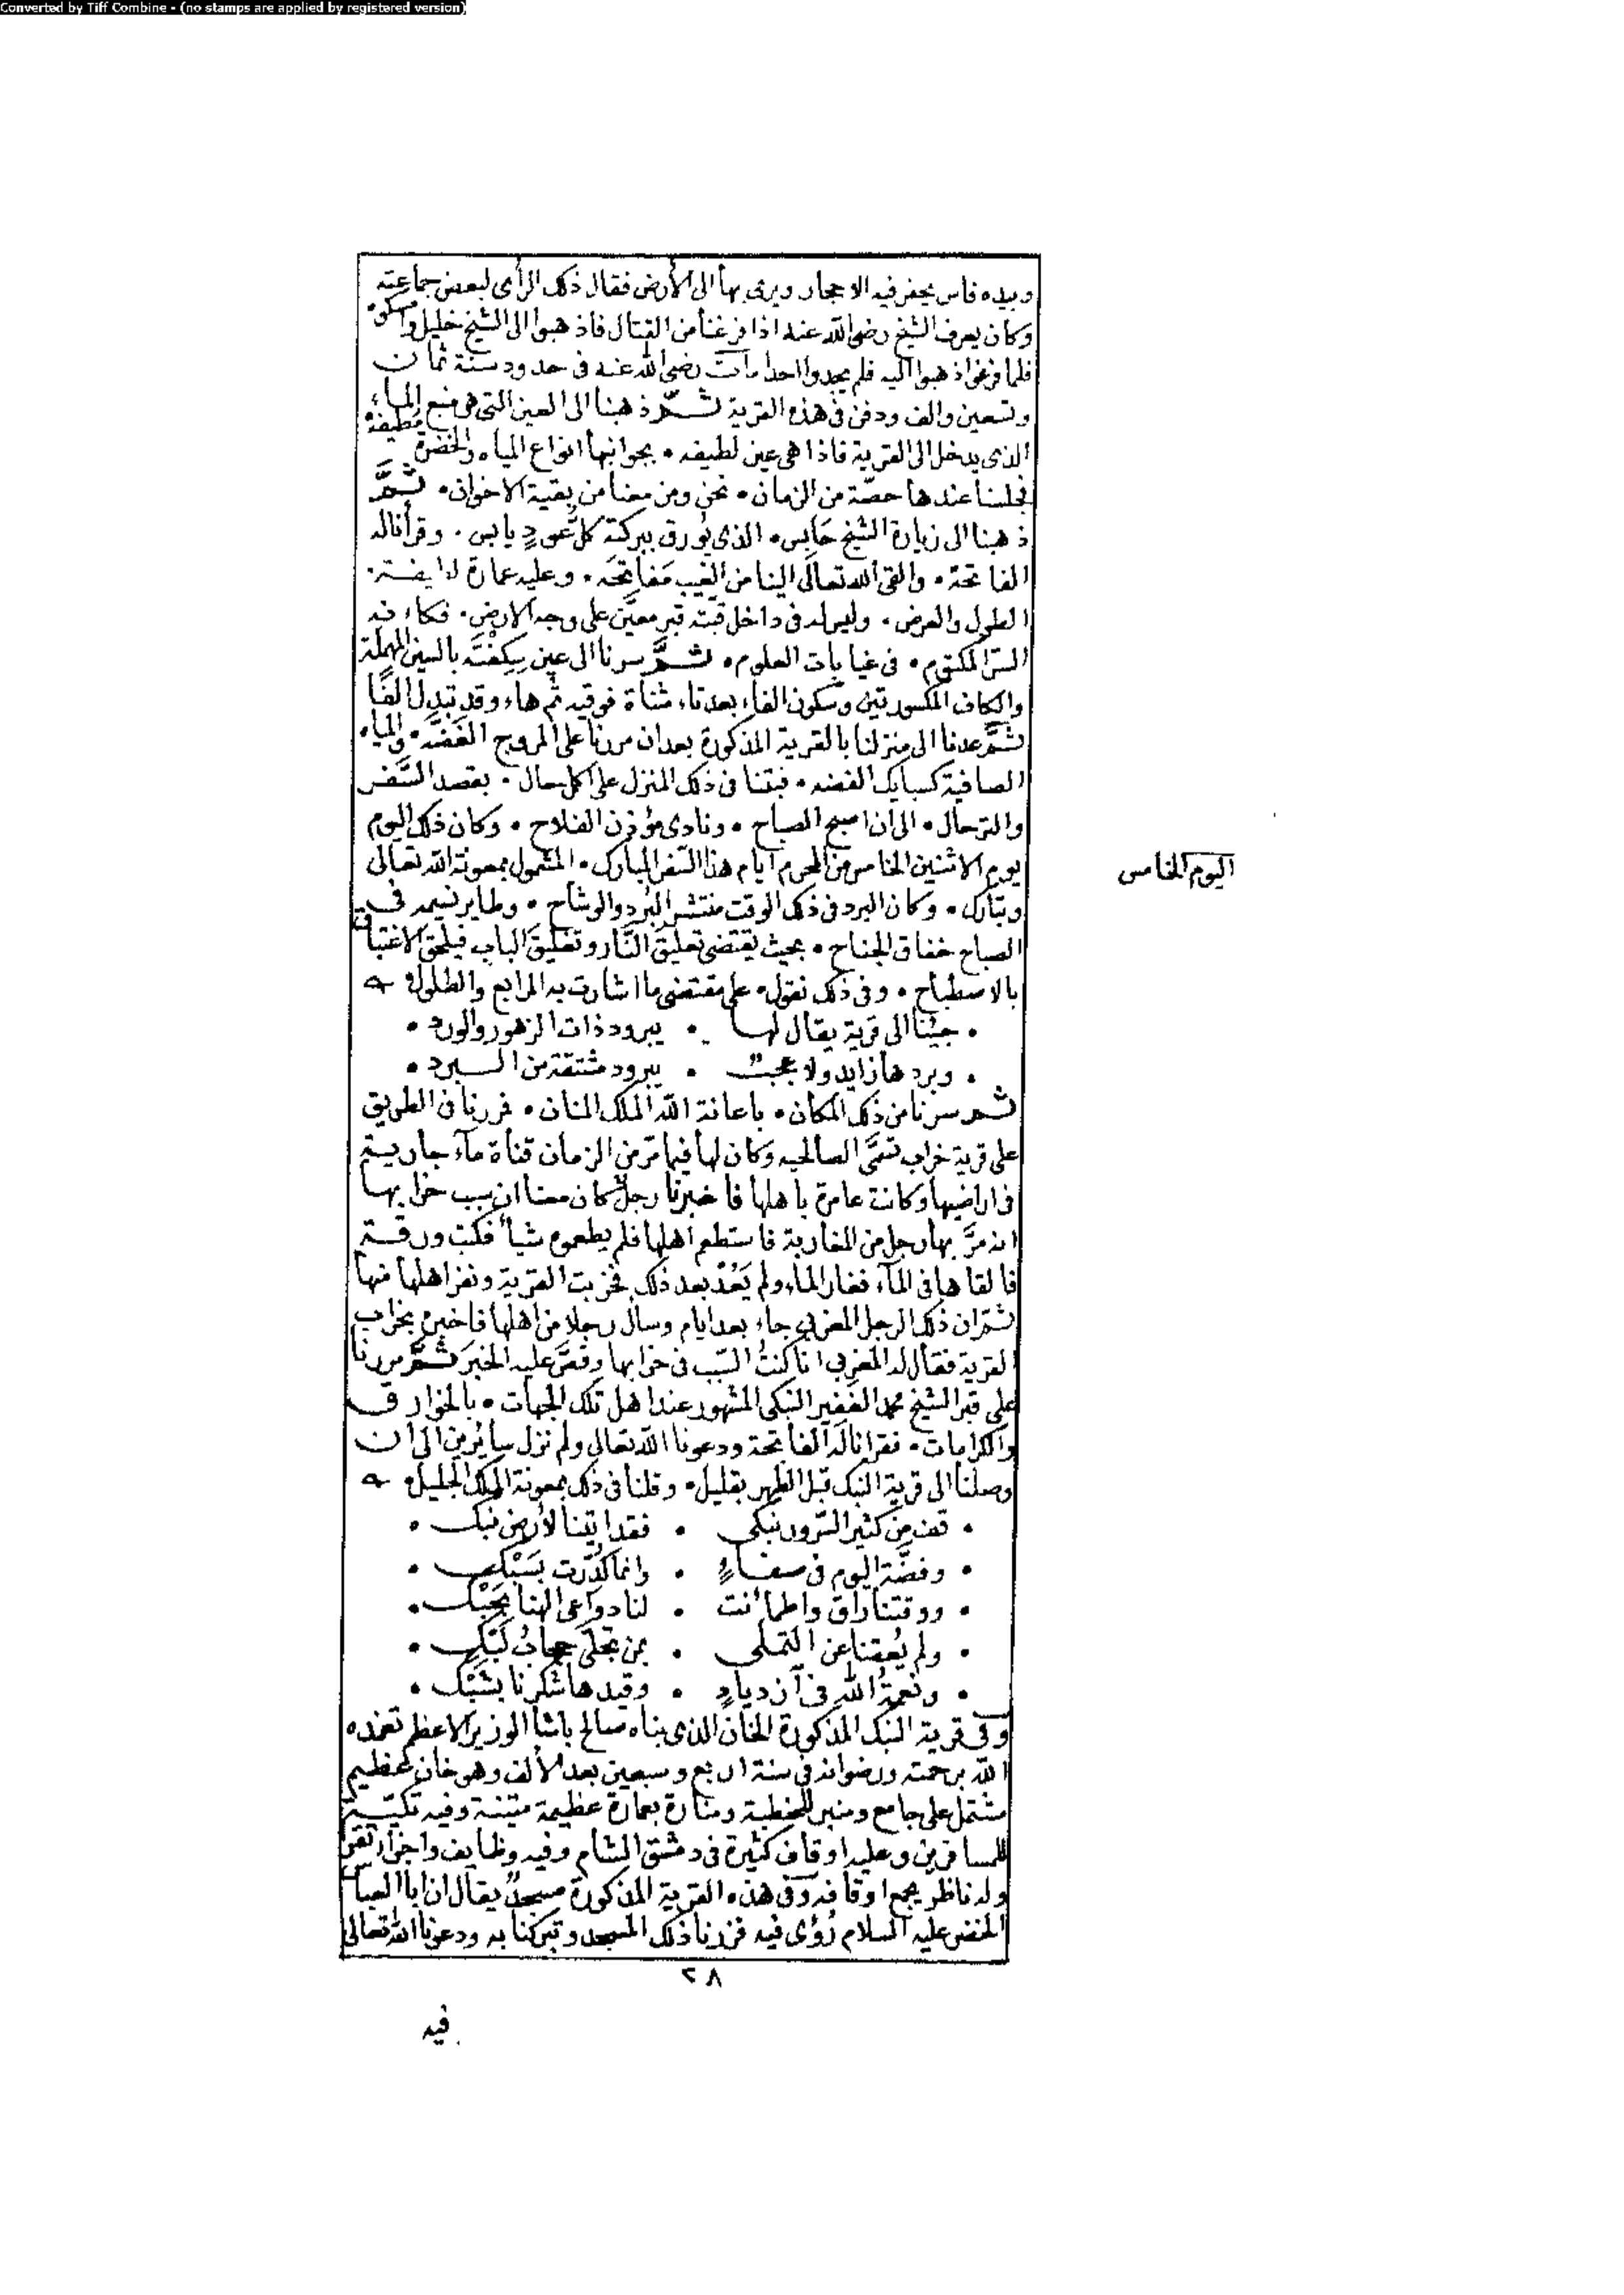 Converted by Tiff Combine - (no stamps are applied by registered version)
وبيده فاس يحفر فيه الاحجار ويرمى بها الى الأرض فقال ذلك الرأى لبعض جماعته
وكان يعرف الشيخ رضى الله عنه اذا فرغنا من القتال فاذهبوا الى الشيخ خليل وامسكوه
فلما فرغوا ذهبوا اليه فلم يجدوا احدا مات رضى الله عنه فى حدود سنة ثمان
وتسعين والف ودفن فى هذه القرية ثم ذهبنا الى العين التى هى منبع الماء
الذى يدخل الى القرية فاذا هى عين لطيفه • بجوانبها انواع المياه والخضرة مطيفة
فجلسنا عندها حصّة من الزمان • نحن ومن معنا من بقية الاخوان • ثمَّ
ذهبنا الى زيارة الشيخ حَابِس • الذى يُورق ببركته كلّ عودٍ يابس • وقرأنا له
الفاتحة • والقى الله تعالى الينا من الغيب مَفَاتحَه • وعليه عمارة
الطول والعرض • وليس له فى داخل قبته قبر معيَّن على وجه الارض • فكانه
السرّ المكتوم • فى غيابات العلوم • ثمَّ سرنا الى عين سِكِفْتَه بالسين المهملة
والكاف المكسورتين وسكون الفاء بعدتاء مثناة فوقيه ثم هاء وقد تبدل الفًا
ثمَّ عدنا الى منزلنا بالقرية المذكورة بعد ان مررنا على المروج الغَضّه • والمياه
الصافية كسبايك الفضه • فبتنا فى ذلك المنزل على اكل حال • بقصد السَّفر
والترحال • الى أن اصبح الصباح • ونادى مؤذن الفلاح • وكان ذلك اليوم
يوم الاثنين الخامس من المحرم ايام هذا السّفر المبارك • المشمول بمعونة الله تعالى
اليوم الخامس
وتبارك • وكان البرد فى ذلك الوقت منتشر البُرد والوشاح • وطاير نسيمه فى
الصباح خفاق الجناح • بحيث يقتضى تعليق النَّار وتغليق الباب فيلحق الاغتباق
بالاسطباح • وفى ذلك نقول • على مقتضى ما اشارت به المرابع والطلول •
• جئنا الى قرية يقال لها • يبرود ذات الزهور والورد •
• وبردها زايد ولا عجبٌ • يبرود مشتقة من البرد •
ثم سرنا من ذلك المكان • باعانة الله الملك المنان • فمررنا فى الطريق
على قرية خراب تسمَّى الصالحيه وكان لها فيما مرّ من الزمان قناة مآء جار
فى اراضيها وكانت عامرة باهلها فاخبرنا رجل كان معنا ان سبب خرابها
انه مرَّ بها رجل من المغاربة فاستطعم اهلها فلم يطعموه شيأ فكتب ورقة
فالقاها فى المآء فغار الماء ولم يَعُدْ بعد ذلك فخربت القرية ونفر اهلها منها
ثم ان ذلك الرجل المغربي جاء بعد ايام وسأل رجلا من اهلها فاخبره بخراب
القرية فقال له المغربي انا كنتُ السّبب فى خرابها وقصَّ عليه الخبرَ ثمَّ مررنا
على قبر الشيخ محمد الغفير النبكى المشهور عند اهل تلك الجهات • بالخوارق
والكرامات • فقرانا له الفاتحة ودعونا الله تعالى ولم نزل سايُرين الى أن
وصلنا الى قرية النبك قبل الظهر بقليل • وقلنا فى ذلك بمعونة الملك الجليل •
• قف من كثير السّرور نبكى • فقد اتينا لأرض نبك •
• وفضّة اليوم فى صفاءٍ • وانما كُدّرت بسَبْكِ •
• ووقتنا راق واطمأنت • لنا دواعى الهنا بحَبْك •
• ولم يُعقنا عن التملى • بمن تجلّى حجابُ لَبْكِ •
• ونعمةُ الله فى ازديادٍ • وقيدها شكرنا بشَبْكِ •
وفى قرية النبك المذكورة الخان الذى بناه صالح باشا الوزير الاعظم تغمده
الله برحمته ورضوانه فى سنة اربع وسبعين بعد الألف وهو خان عظيم
مشتمل على جامع ومنبر للخطبة ومنارة بعمارة عظيمة متينة وفيه تكيّة
للمسافرين وعليه اوقاف كثيرة فى دمشق الشام وفيه وظايف واجزاء
وله ناظر يجمع اوقافه وفى هذه القرية المذكورة مسجدٌ يقال ان ابا العباس
الخضر عليه السلام رُؤى فيه فزرنا ذلك المسجد وتبركنا به ودعونا الله تعالى
٢٨
فيه